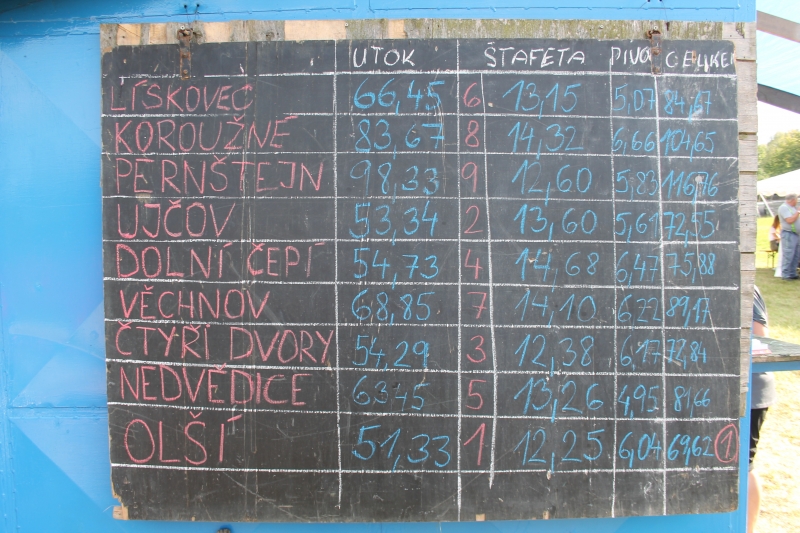 ÚTOK ŠTAFETA PIVO CELKEM
LÍSKOVEC 66,45 6 13,15 5,07 84,67
KOROUŽNÉ 83,67 8 14,32 6,66 104,65
PERNŠTEJN 98,33 9 12,60 5,83 116,76
UJČOV 53,34 2 13,60 5,61 72,55
DOLNÍ ČEPÍ 54,73 4 14,68 6,47 75,88
VĚCHNOV 68,85 7 14,10 6,22 89,17
ČTYŘI DVORY 54,29 3 12,38 6,17 72,84
NEDVĚDICE 63,45 5 13,26 4,95 81,66
OLŠÍ 51,33 1 12,25 6,04 69,62 1